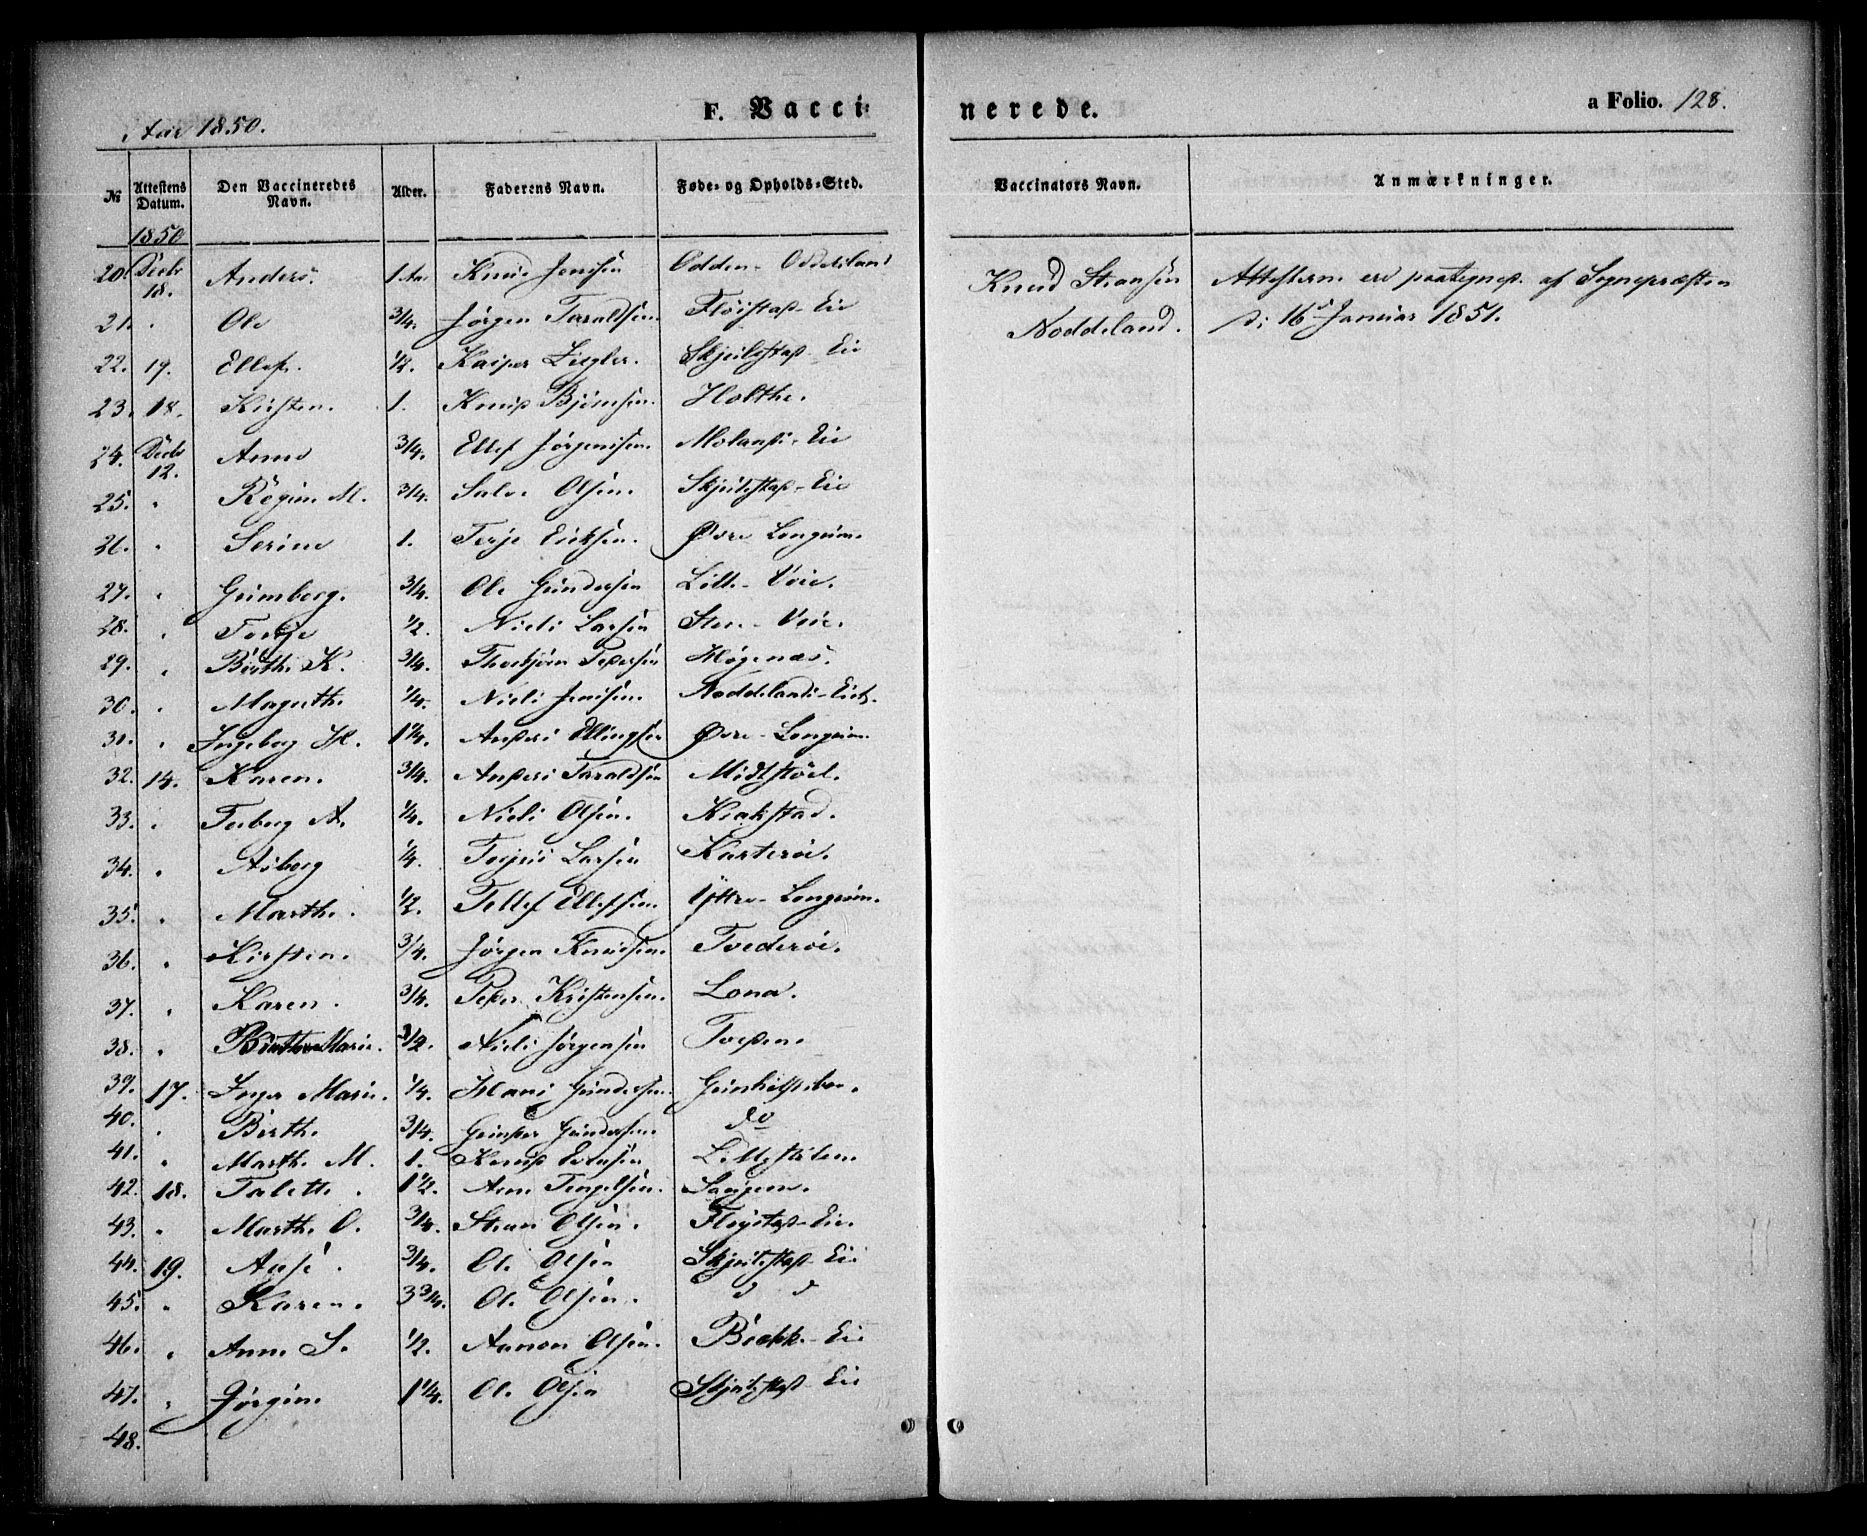 Aar 1850.
F. Vacci- nerede. a Folio. 128.
№ Attestens Datum. Den Vaccineredes Navn. Alder. Faderens Navn. Føde- og Opholds-Sted. Vaccinators Navn. Anmærkninger.
1850
20. Decbr 18. Anders. 1. Aar Knud Jensen Odden - Oddeland Knud Stiansen Attesterne ere paategnet af Sognepræsten
21. " Ole 3/4. Jørgen Taraldsen Fløistad - Eie Noddeland. d: 16d Januar 1851.
22. 19. Ellef. 1/2. Kasper Ziegler. Skjulestad - Eie
23. 18. Kirsten. 1. Knud Bjørnsen. Holthe.
24. Decbr 12. Anne 3/4. Ellef Jørgensen. Molands - Eie
25. " Regine M. 3/4. Salve Olsen. Skjulestad - Eie
26. " Serine 1. Terje Ericksen. Øvre Longum.
27. " Gunborg. 3/4. Ole Gundersen Lille - Veie.
28. " Terje 1/2. Niels Larsen Store - Veie.
29. " Birthe K. 3/4. Thorbjørn Pedersen Mogenæs.
30. " Magrethe 1/4. Niels Jensen. Noddelands - Eiet.
31. " Ingeborg M. 1 1/4. Anders Ellingsen Øvre - Longum
32. 14. Karen. 3/4. Anders Taraldsen Midtstøel.
33. " Torborg A. 1/4. Niels Olsen. Krakstad.
34. " Asborg 1/4. Terjus Larsen Karterøe.
35. " Marthe. 1/2. Tellef Ellefsen. Yttre - Longum.
36. " Kirsten. 3/4. Jørgen Knudsen. Tvederøe.
37. " Karen. 3/4. Peder Kristensen. Lona.
38. " Birthe Marie. 3/2. Niels Jørgensen Tveden.
39. 17. Inger Marie. 1/4. Hans Gundersen.
40. " Birthe. 3/4. Gunder Gundersen. do
41. " Marthe M. 1. Knud Evensen
42. 18. Talette. 1 1/2. Arne Tengelsen. Langum.
43. " Marthe O. 3/4. Stian Olsen. Fløistad - Eie.
44. 19. Anse. 3/4. Ole Olsen Skjulestad - Eie
45. " Karen. 3 3/4. Ole Olsen. d d
46. " Anne S. 1/2. Aanon Olsen. Biekke - Eie
47. " Jørgine. 1 1/4. Ole Olsen Skjulestad - Eie
48.